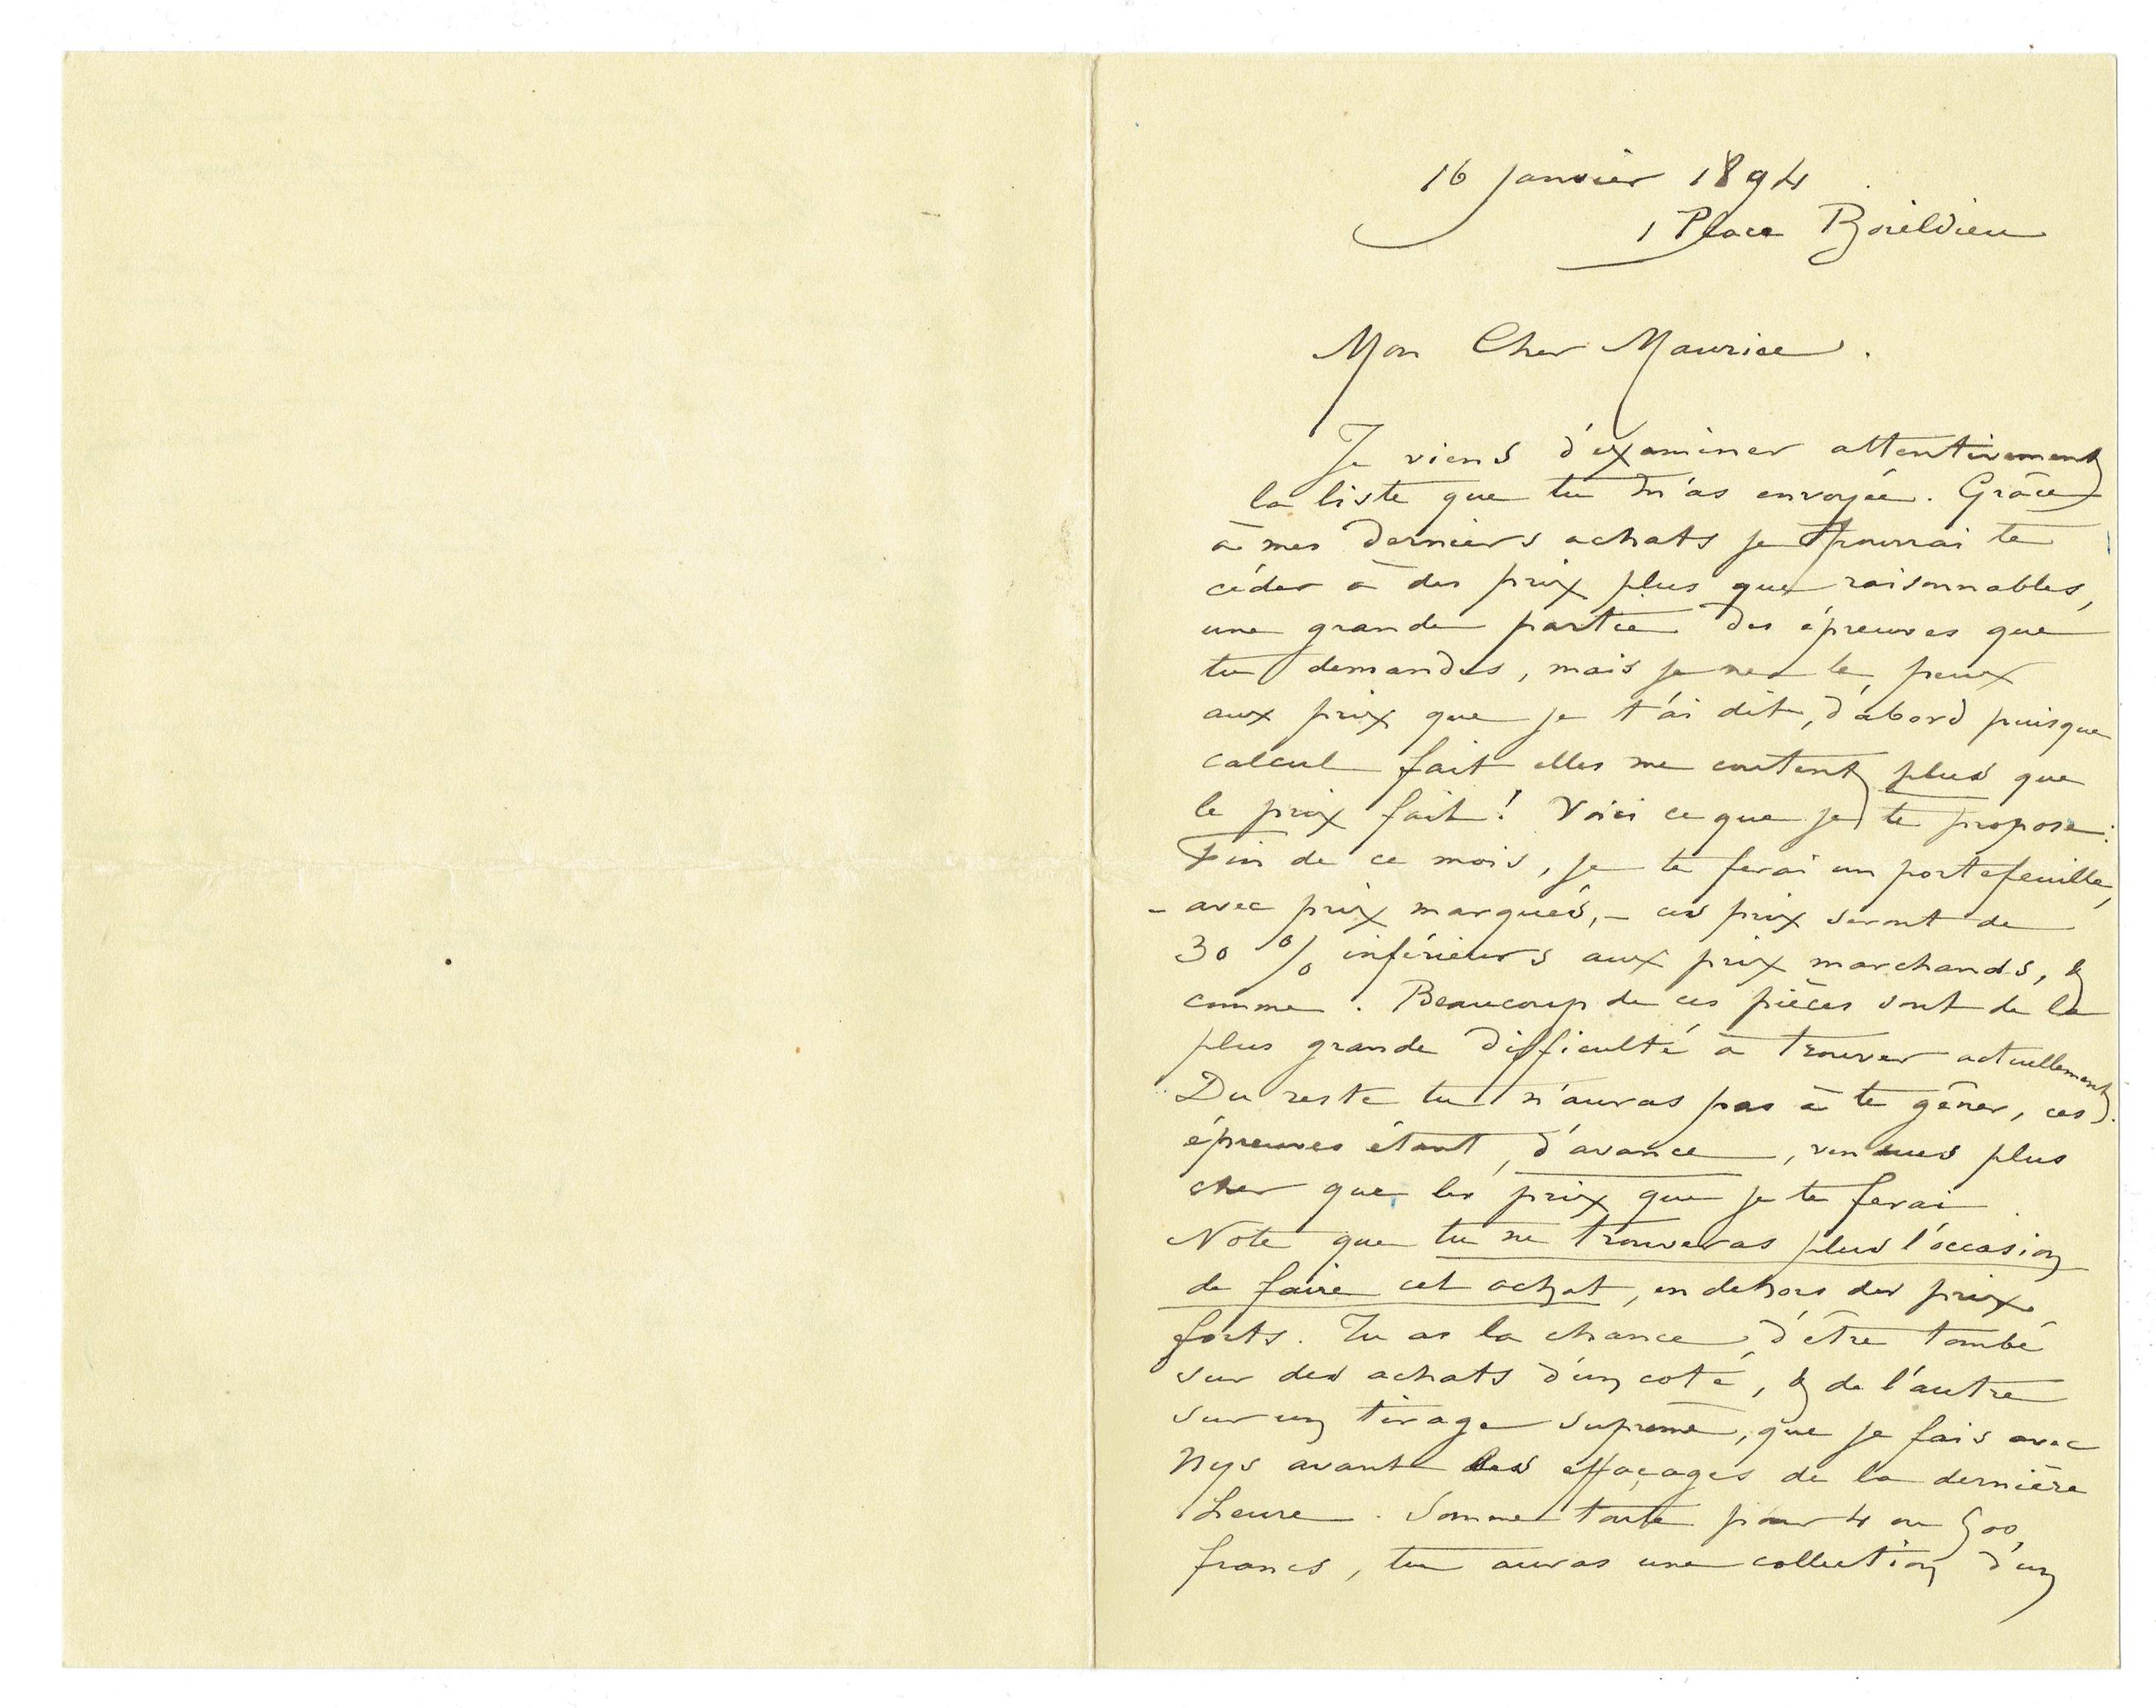 16 janvier 1894
1 Place Boieldieu
Mon Cher Maurice.
Je viens d'examiner attentivement
la liste que tu m'as envoyée. Grâce
à mes derniers achats je pourrai te
céder à des prix plus que raisonnables,
une grande partie des épreuves que
tu demandes, mais je ne le peux
aux prix que je t'ai dit, d'abord puisque
calcul fait elles me coutent plus que
le prix fait! Voici ce que je te propose:
Fin de ce mois, je te ferai un portefeuille,
- avec prix marqués, - ces prix seront de
30 % inférieurs aux prix marchands, &
comme. Beaucoup de ces pièces sont de la
plus grande difficulté à trouver actuellement.
Du reste tu n'auras pas à te gêner, ces
épreuves étant, d'avance, vendues plus
cher que les prix que je te ferai.
Note que tu ne trouveras plus l'occasion
de faire cet achat, en dehors des prix
forts. Tu as la chance d'être tombé
sur des achats d'un coté, & de l'autre
sur un tirage suprème, que je fais avec
Nys avant les effaçages de la dernière
heure. Somme toute pour 4 ou 500
francs, tu auras une collection d'un